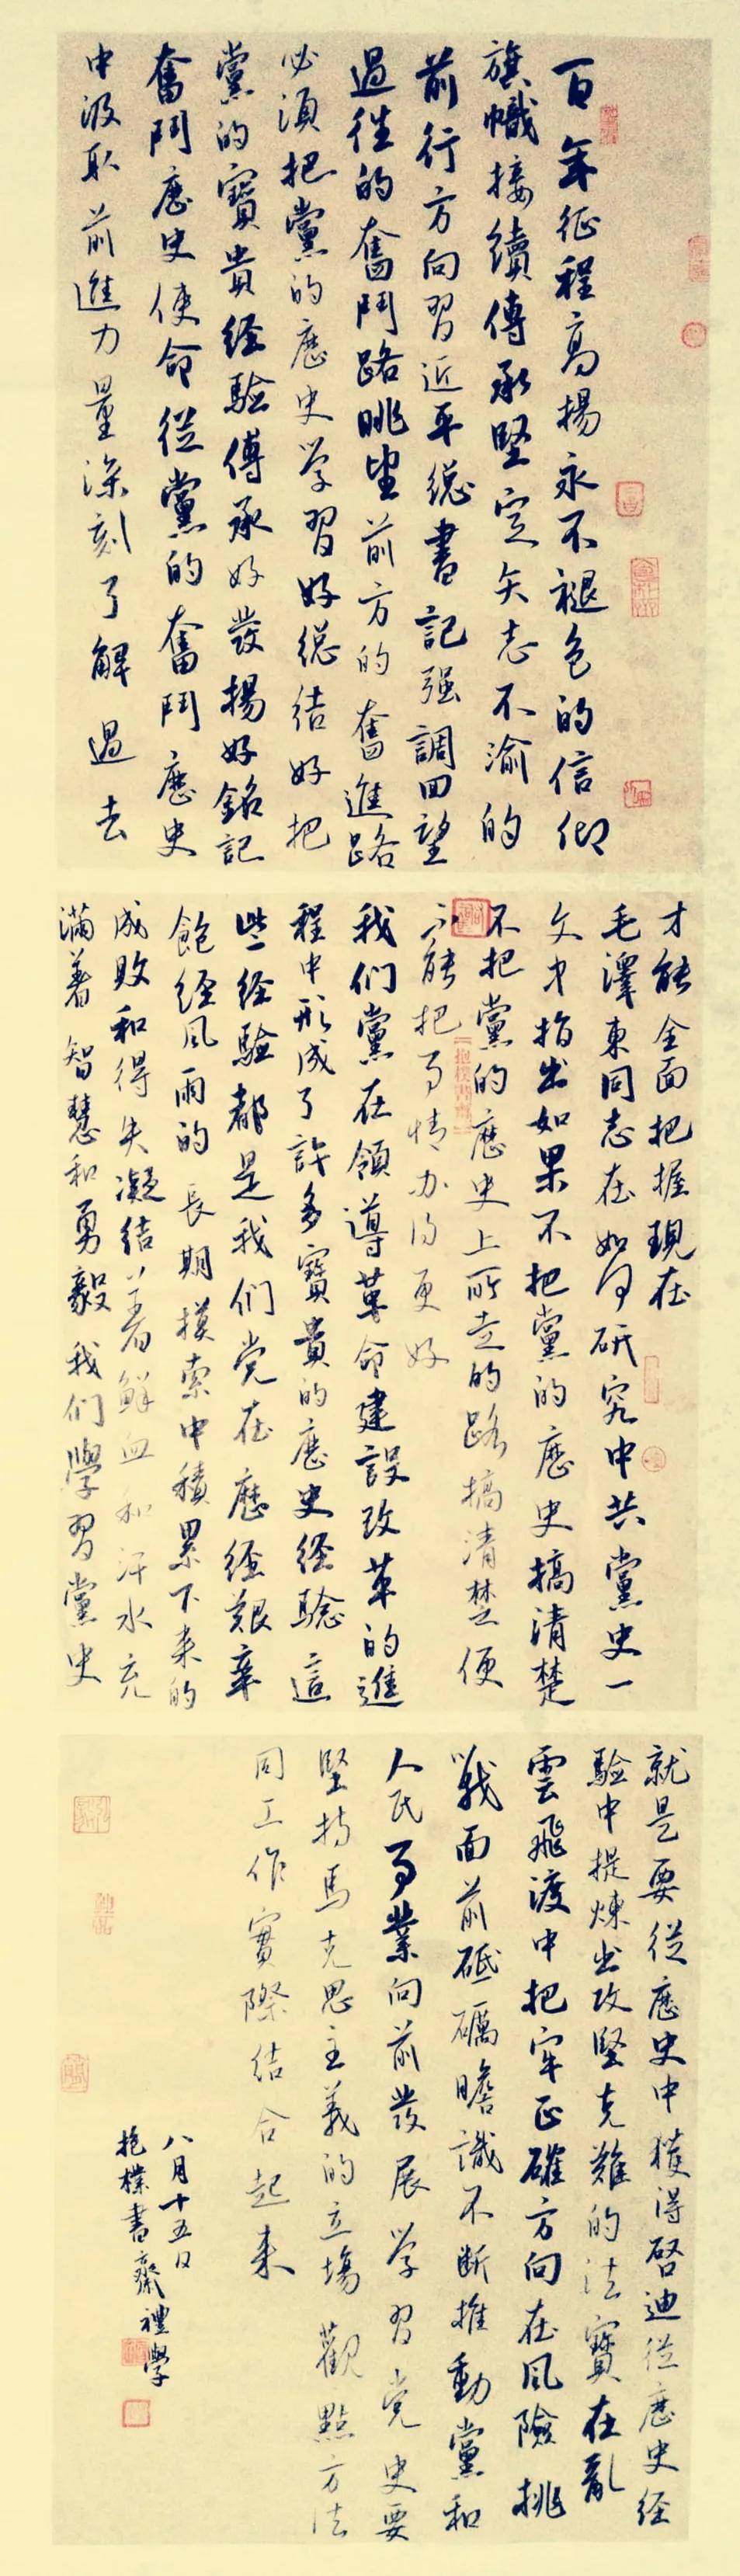 百年征程高揚永不褪色的信仰
旗幟接續傳承堅定矢志不渝的
前行方向習近平總書記强調回望
過往的奮鬥路眺望前方的奮進路
必須把黨的歷史学習好總结好把
黨的寶貴经驗傳承好發揚好銘記
奮鬥歷史使命從黨的奮鬥歷史
中汲取前進力量深刻了解過去
才能全面把握現在
毛澤東同志在如何研究中共黨史一
文中指出如果不把黨的歷史搞清楚
不把黨的歷史上所走的路搞清楚便
不能把事情办得更好
我们黨在領導革命建設改革的進
程中形成了許多寶貴的歷史經驗這
些经驗都是我们党在歷經艱辛
飽經风雨的長期摸索中積累下来的
成敗和得失凝结着鮮血和汗水充
滿着智慧和勇毅我们學習黨史
就是要從歷史中獲得啓迪從歷史经
驗中提煉出攻堅克難的法寶在亂
雲飛渡中把牢正確方向在风險挑
戰面前砥礪瞻識不斷推動黨和
人民事業向前發展学習党史要
堅持馬克思主義的立場觀點方法
同工作實際结合起来
八月十五日
抱樸書齋禮學
抱樸書齋